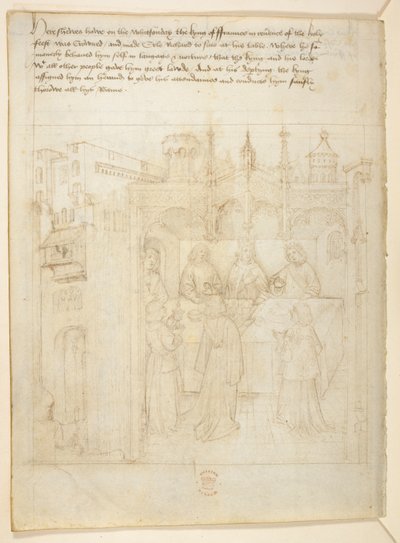 Here shewes howe on the whitsonday the kyng of ffraunce in reverence of the holy
feste was Crowned / and made Erle Richard to sitte at his table. Where he so
manerly behaved hym self in langage & norture / that the kyng and his lordes
wt all other people gave hym greet lawde. And at his deptyng the kyng
assigned hym an heraude to gyve his attendaunce and conduct hym saufly
thorowe all his Reame.